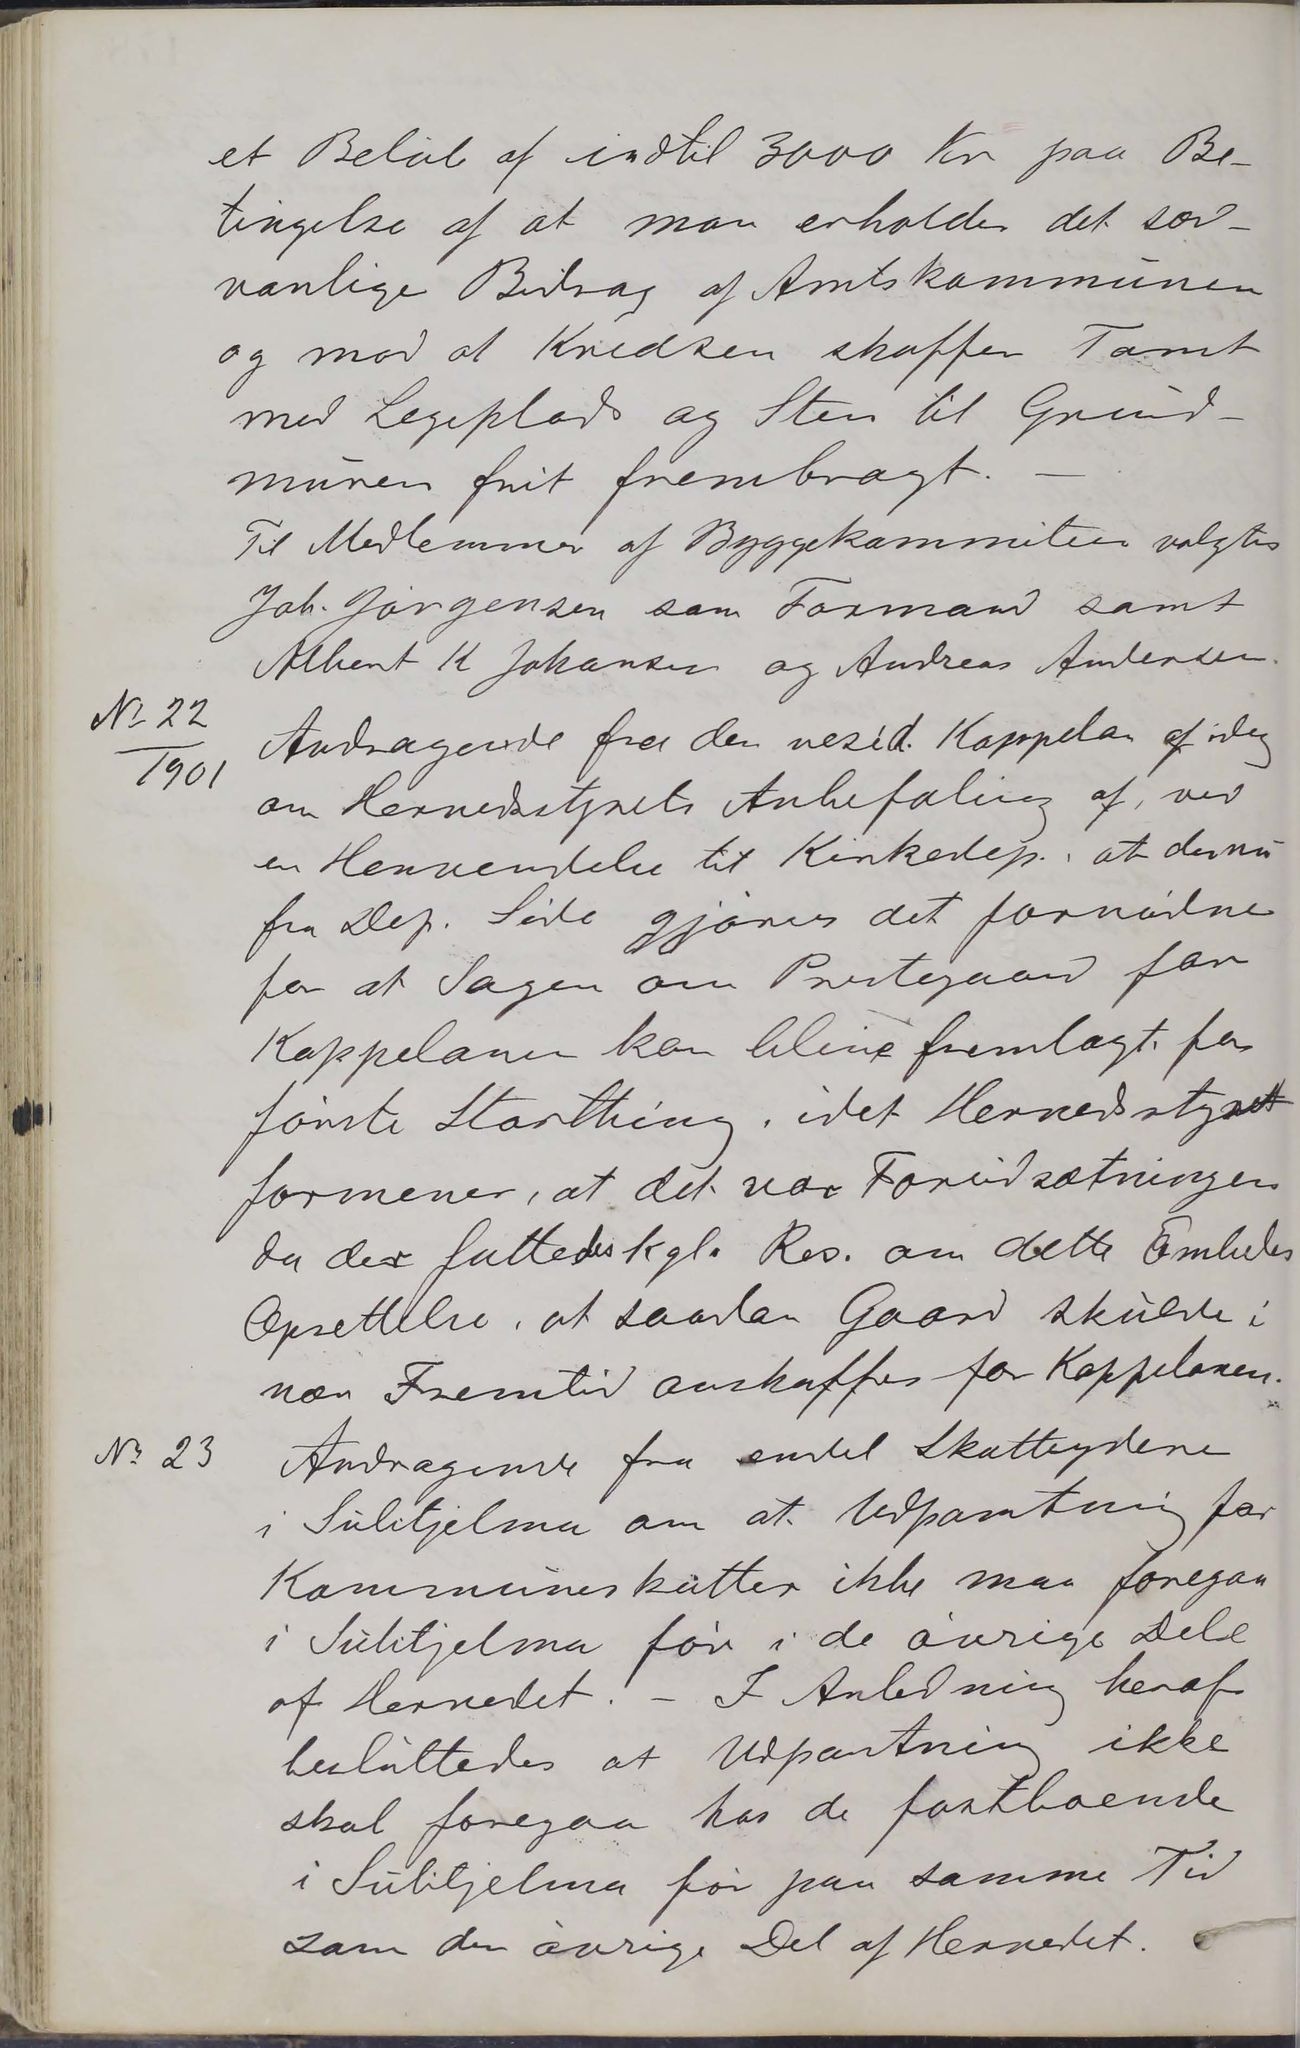 et Beløb af indtil 3000 Kr paa Be-
tingelse af at man erholder det sæd-
vanlige Bidrag af Amtskommunen
og mod at Kredsen skaffer Tomt
med Legeplads og Sten til Grund-
muren frit frembragt. —
Til Medlemmer af Byggekommiteen valgtes
Joh. Jørgensen som Formand samt
Albert K Johansen og Andreas Andersen.
No 22
1901
Andragende fra den resid. Kappelan af
om Herredsstyrets Anbefaling af, ved
en Henvendelse til Kirkedep., at der nu
fra Dep. Side gjøres det fornødne
for at Sagen om Prestegaard for
Kappelanen kan blive fremlagt for
første Storthing, idet Herredsstyret
formener, at det var Forudsætningen
da der fattedes kgl. Res. om dette Embedes
Oprettelse, at saadan Gaard skulde i
nær Fremtid anskaffes for Kappelanen.
No 23
Andragende fra endel Skatteydere
i Sulitjelma om at Udpantning for
Kommuneskatter ikke maa foregaa
i Sulitjelma før i de øvrige Dele
af Herredet. - I Anledning heraf
besluttedes at Udpantning ikke
skal foregaa hos de fastboende
i Sulitjelma før paa samme Tid
som den øvrige Del af Herredet.